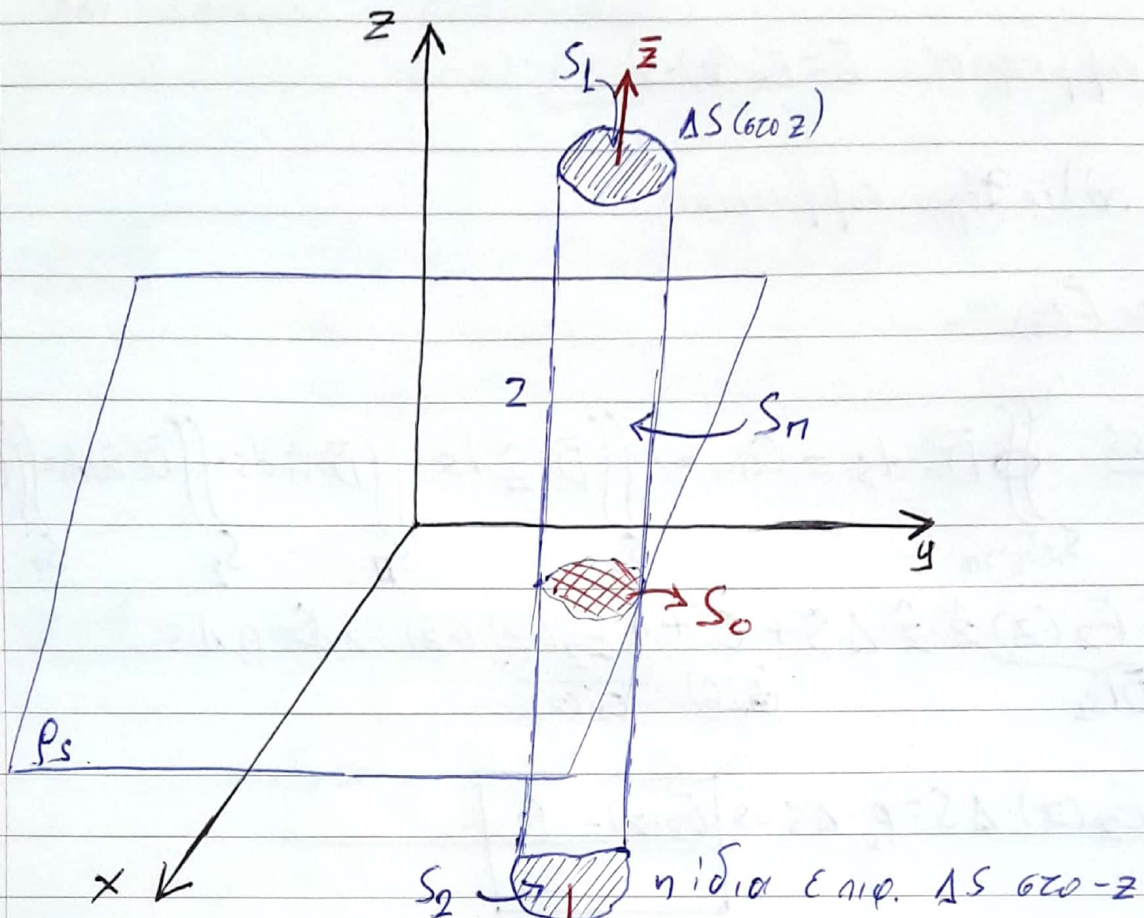 z
S₁ z̄
ΔS (στο z)
2
Sπ
y
S₀
ρs
x
S₂ η ίδια επιφ. ΔS στο -z